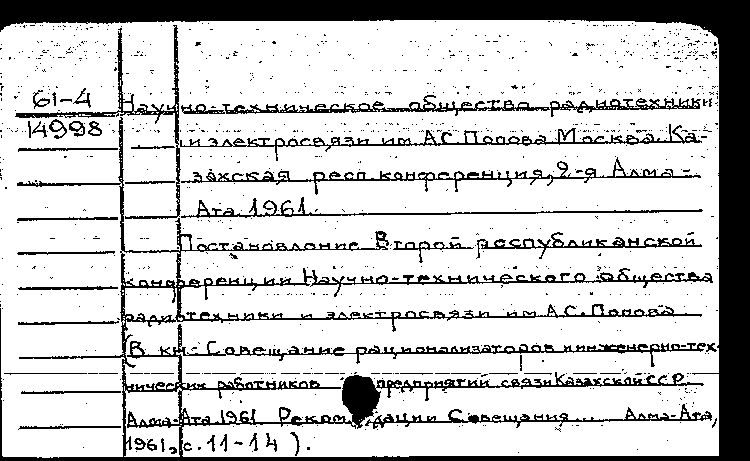 61-4 Научно-техническое общество радиотехники
14998 и электросвязи им. А.С. Попова Москва. Ка-
захская респ. конференция, 2-я Алма-
Ата 1961.
Постановление Второй республиканской
конференции Научно-технического общества
радиотехники и электросвязи им. А.С. Попова.
(В кн.: Совещание рационализаторов и инженерно-тех-
нических работников предприятий связи Казахской ССР.
Алма-Ата 1961. Рекомендации Совещания... Алма-Ата,
1961, с. 11-14).